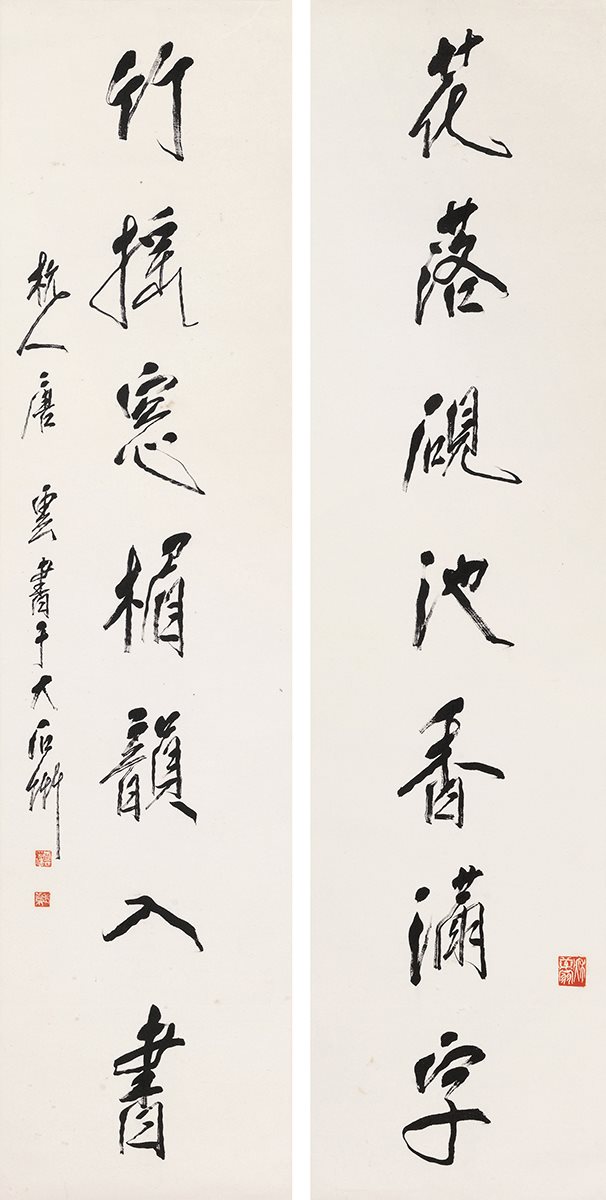 花落硯池香滿字
竹搖窓楣韻入書
杭人唐雲書于大石